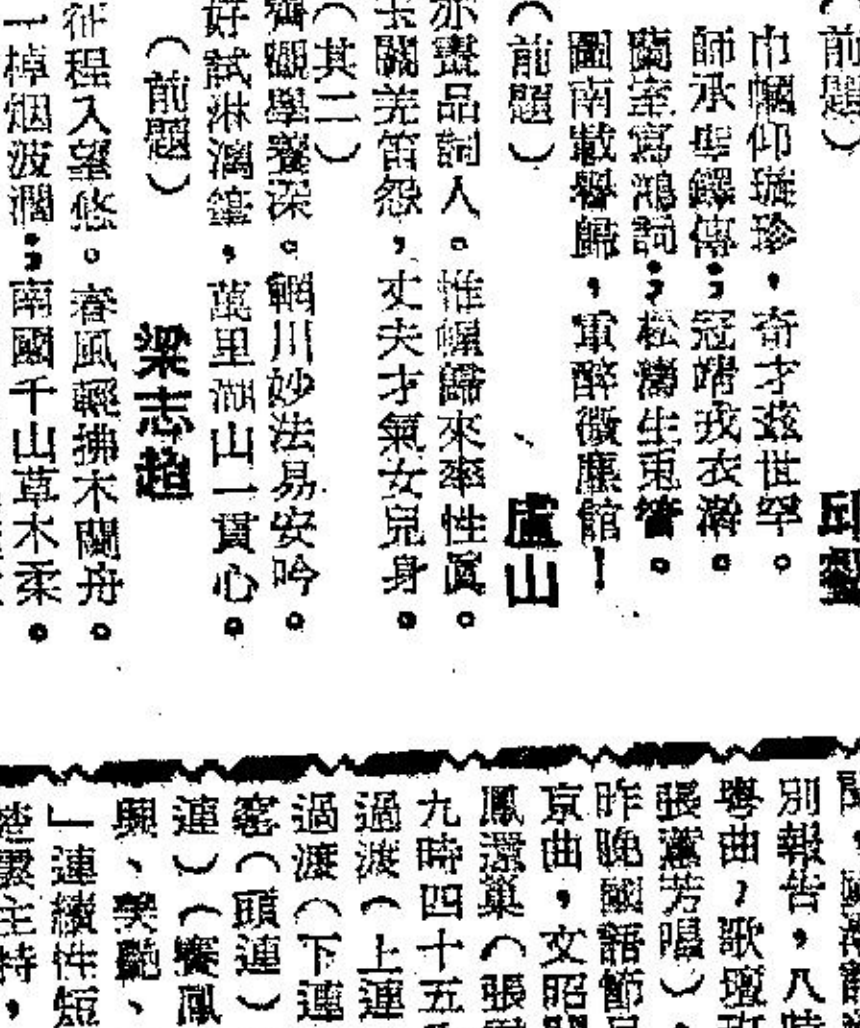 （前題）
邱
巾幗仰璇珍，奇才茲世罕。
師承鐸傳；冠戎衣。
蘭室寫鴻詞；松濤生兎管。
圖南載譽歸，重醉微廬館！
（前題）
盧山
亦畫品詞人。惟歸來率性眞。
關羌笛怨，丈夫才氣女兒身。
（其二）
觀學養深。輞川妙法易安吟。
好試淋漓筆，萬里湖山一貫心。
（前題）
梁志超
征程入望悠。春風輕拂木蘭舟。
一棹烟波濶；南國千山草木柔。
別報告，八時
粤曲，歌壇
張蕙芳唱）、
昨晚國語節
京曲，文昭關
鳳還巢（張
九時四十五
過渡（上連
過渡（下連
窰（頭連）
連）（鳳
興、美艷、
」連續性短
主持，